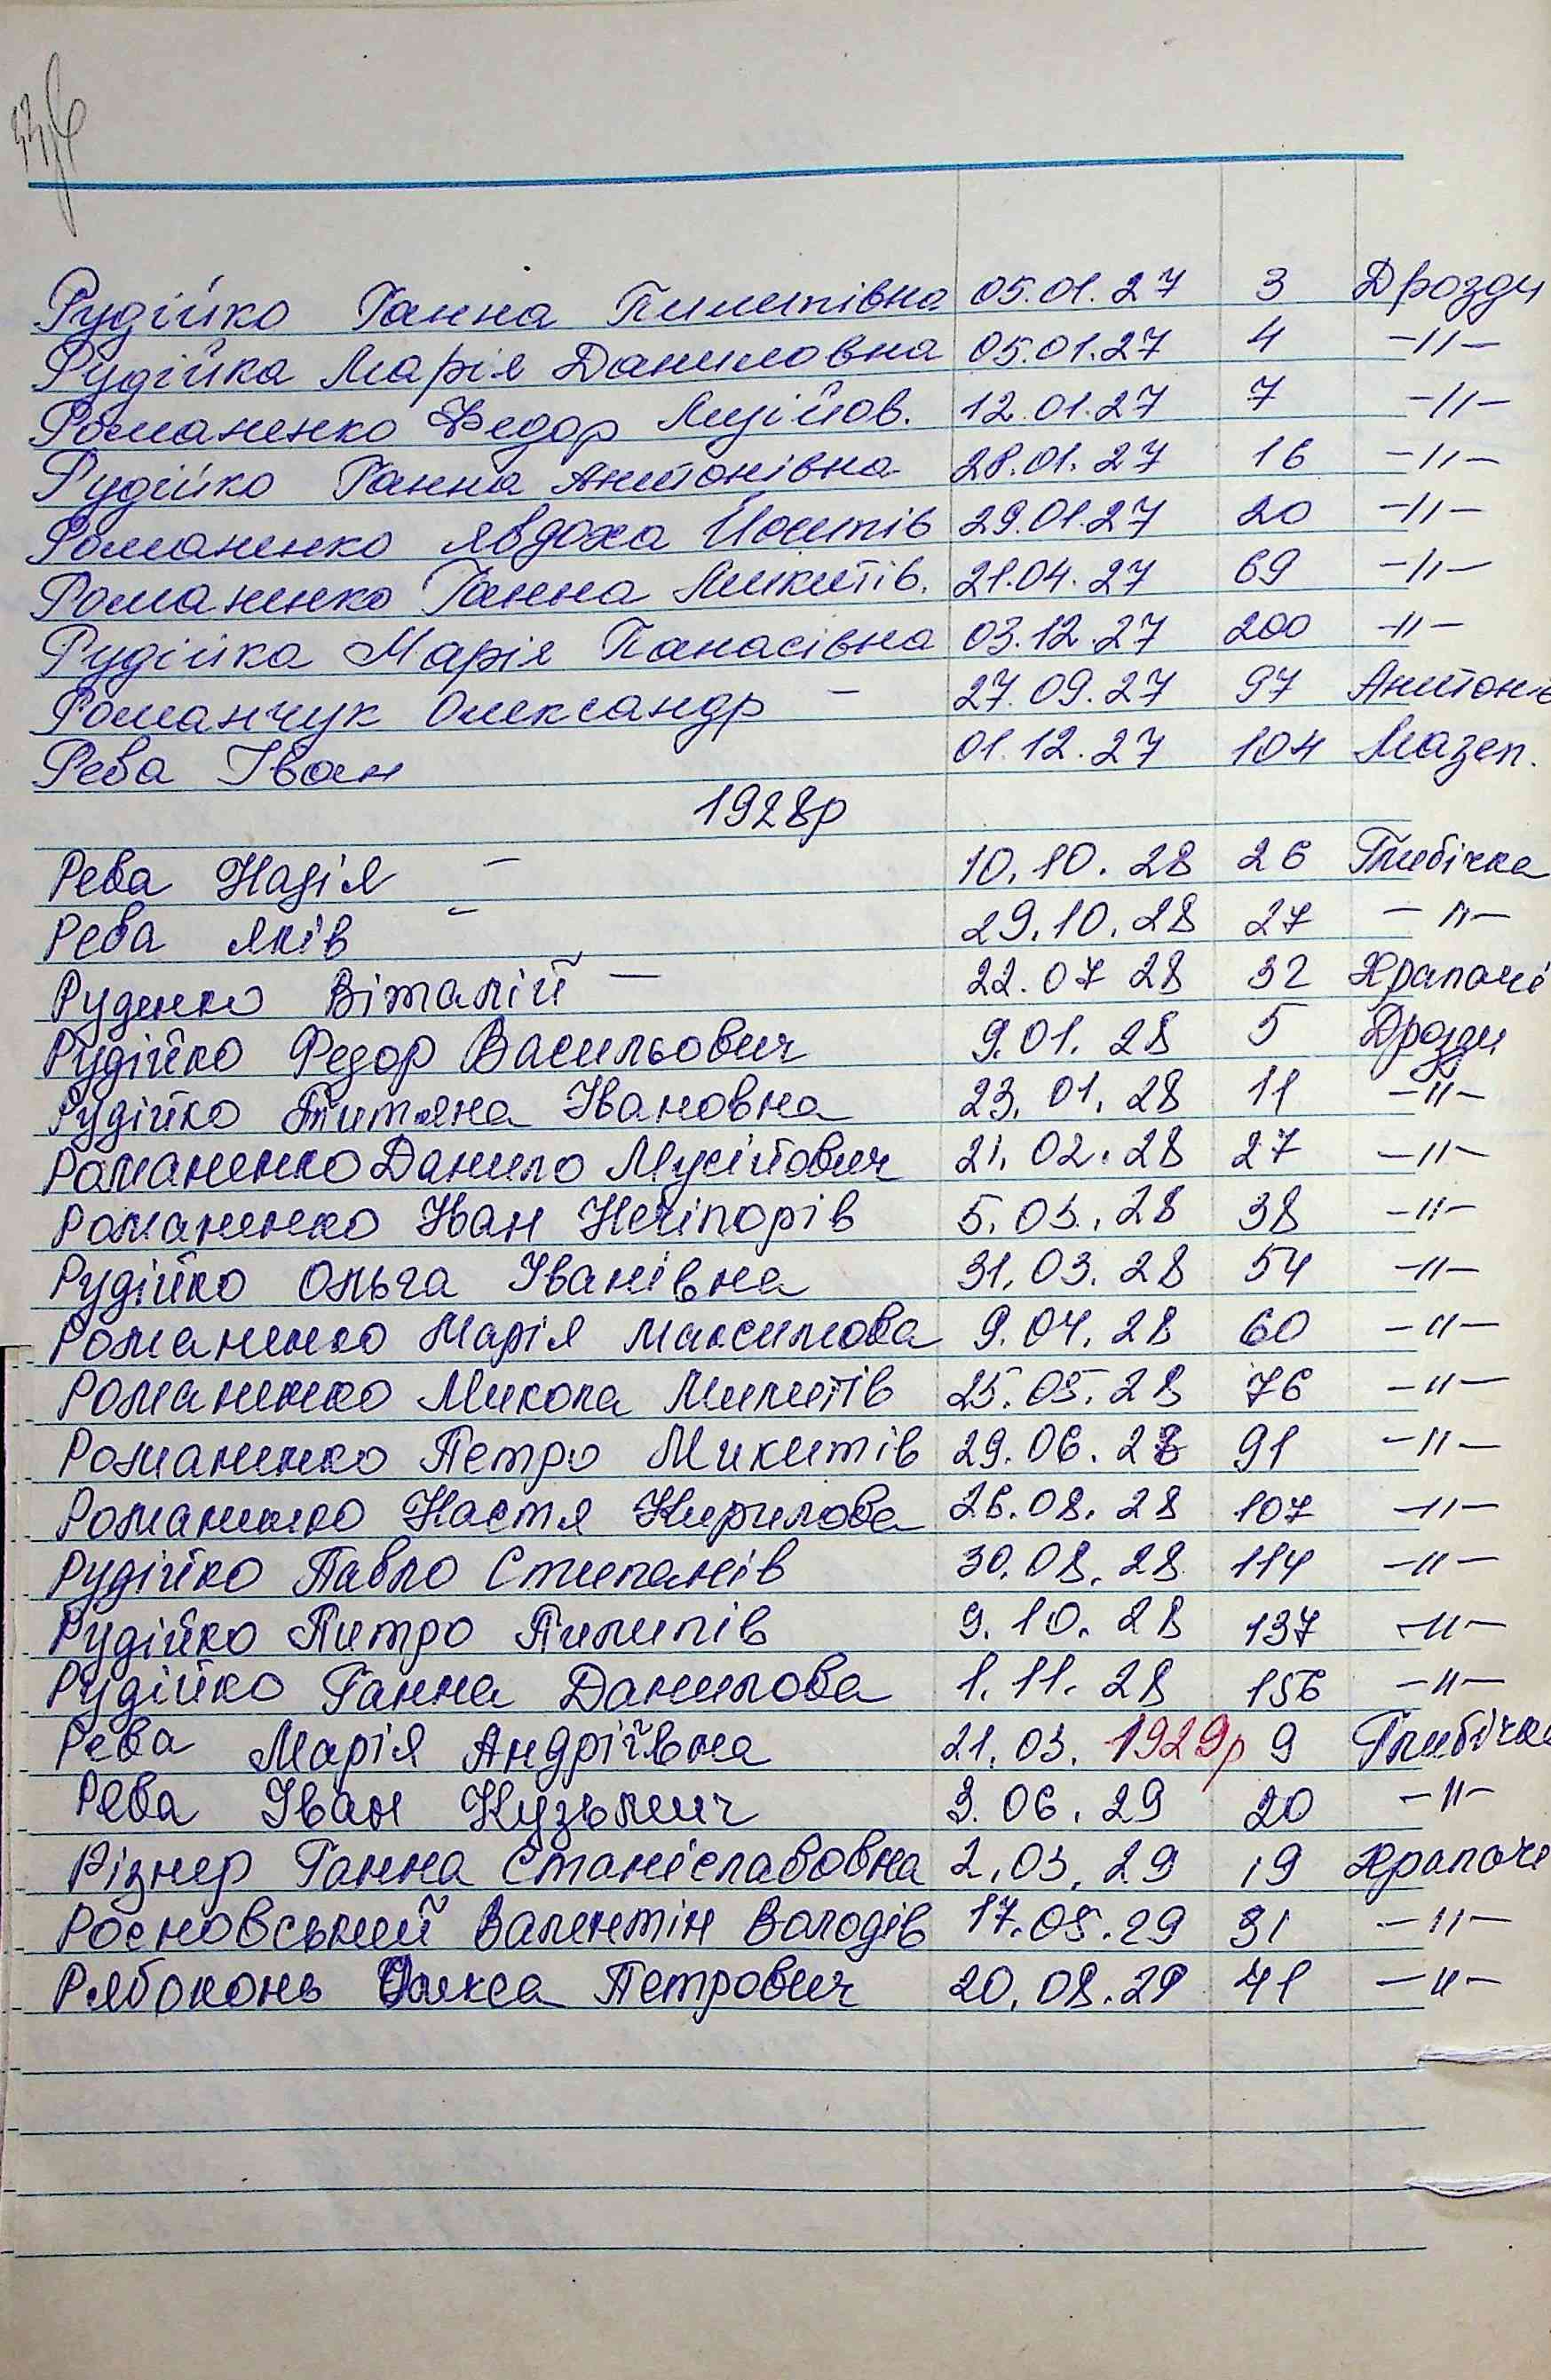 Рудійко Ганна Пилипівна 05.01.27 3 Дрозди
Рудійка Марія Даниловна 05.01.27 4 -//-
Романенко Федор Мусійов. 12.01.27 7 -//-
Рудійко Ганна Антонівна 28.01.27 16 -//-
Романенко Явдоха Йосипів 29.01.27 20 -//-
Романенко Ганна Микитів. 21.04.27 69 -//-
Рудійка Марія Панасівна 03.12.27 200 -//-
Романчук Олександр - 27.09.27 97 Антонів
Рева Іван 01.12.27 104 Мазеп.
1928р
Рева Надія - 10.10.28 26 Глибічка
Рева Яків - 29.10.28 27 -//-
Руденко Віталій - 22.07 28 32 Храпачі
Рудійко Федор Васильович 9.01.28 5 Дрозди
Рудійко Титяна Івановна 23.01.28 11 -//-
Романенко Данило Мусійович 21.02.28 27 -//-
Романенко Іван Нечіпорів 5.03.28 38 -//-
Рудійко Ольга Іванівна 31.03.28 54 -//-
Романенко Марія Максимова 9.04.28 60 -//-
Романенко Микола Микитів 25.05.28 76 -//-
Романенко Петро Микитів 29.06.28 91 -//-
Романенко Настя Кирилова 26.08.28 107 -//-
Рудійко Павло Степанів 30.08.28 114 -//-
Рудійко Питро Пилипів 9.10.28 137 -//-
Рудійко Ганна Данилова 1.11.28 156 -//-
Рева Марія Андріївна 21.03.1929р 9 Глибічка
Рева Іван Кузьмич 3.06.29 20 -//-
Різнер Ганна Станіславовна 2.03.29 19 Храпачі
Росновський Валентін Володів 17.05.29 31 -//-
Рябоконь Олекса Петрович 20.08.29 41 -//-